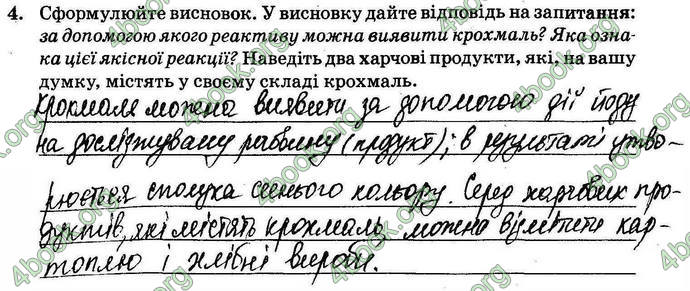 4. Сформулюйте висновок. У висновку дайте відповідь на запитання:
за допомогою якого реактиву можна виявити крохмаль? Яка озна-
ка цієї якісної реакції? Наведіть два харчові продукти, які, на вашу
думку, містять у своєму складі крохмаль.
Крохмаль можна виявити за допомогою дії йоду
на досліджувану рослину (продукт); в результаті утво-
рюється сполука синього кольору. Серед харчових про-
дуктів, які містять крохмаль, можна відмітити кар-
топлю і хлібні вироби.
4book.org